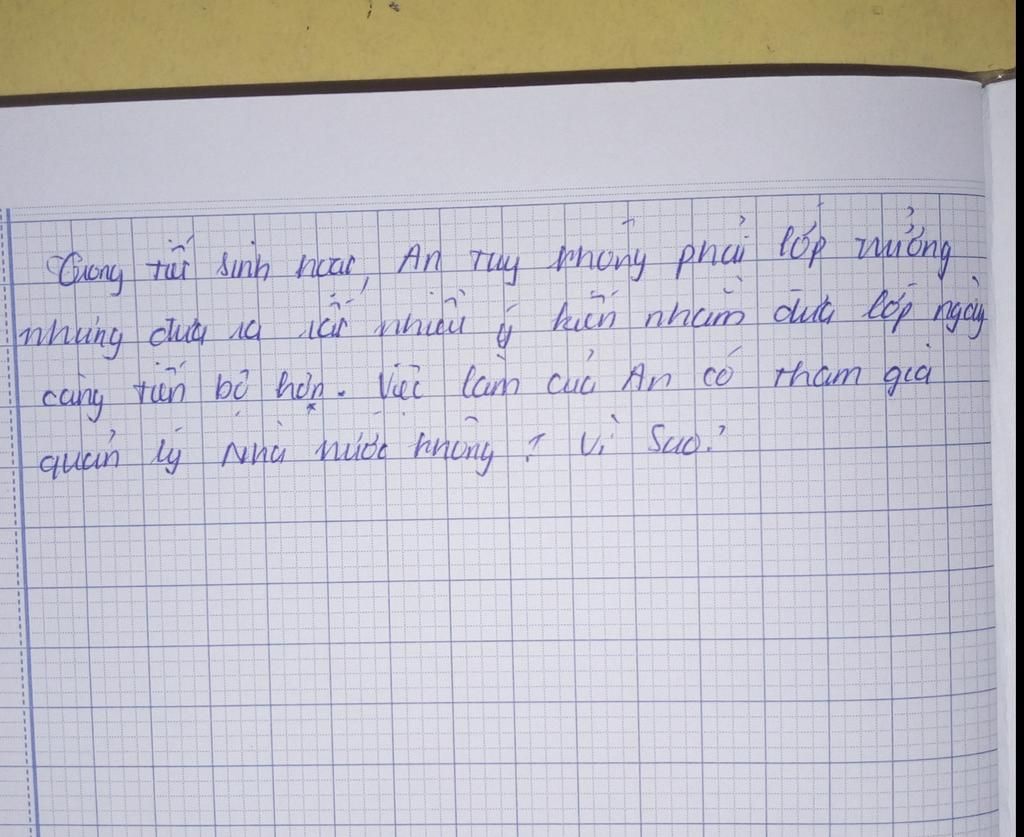 Trong tiết sinh hoạt, An tuy không phải lớp trưởng
nhưng đưa ra rất nhiều ý kiến nhằm đưa lớp ngày
càng tiến bộ hơn. Việc làm của An có tham gia
quản lý Nhà nước không ? Vì sao?